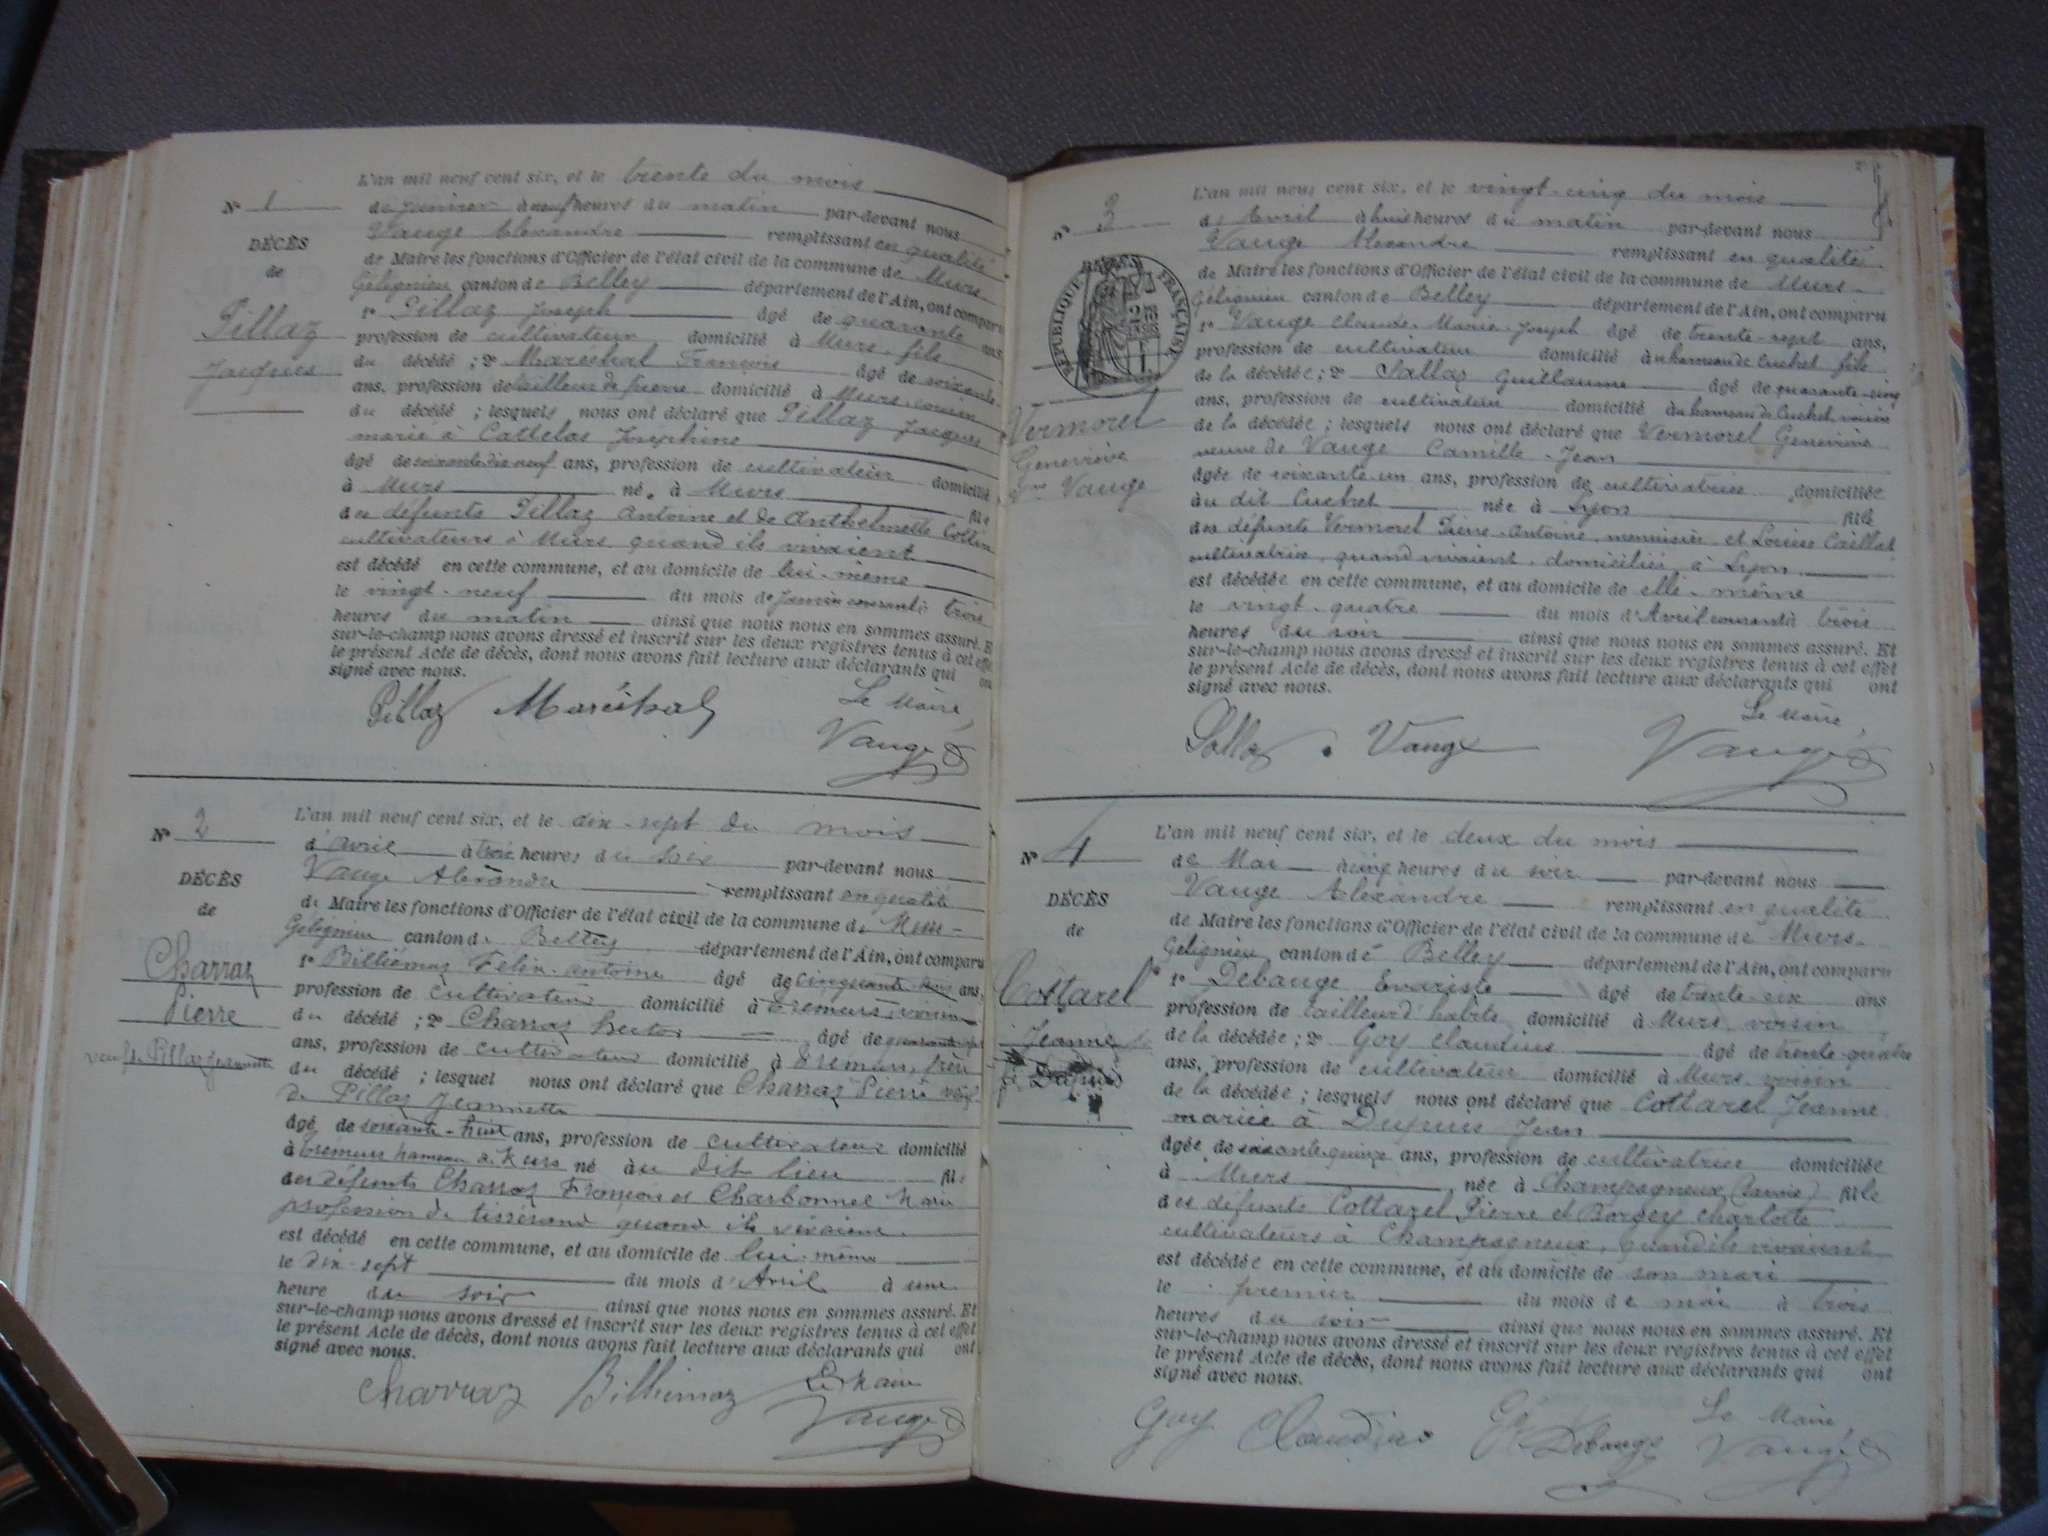 L'an mil neuf cent six, et le trente du mois
N° 1
de janvier à neuf heures du matin par-devant nous
Vauge Alexandre remplissant en qualité
DÉCÈS
de
de Maire les fonctions d'Officier de l'état civil de la commune de Murs-
Gélignieu canton de Belley département de l'Ain, ont comparu
Pillaz
Jacques
1° Pillaz Joseph âgé de quarante ans,
profession de cultivateur domicilié à Murs, fils
du décédé ; 2° Maréchal François âgé de soixante
ans, profession de tailleur de pierre domicilié à Murs, cousin
du décédé ; lesquels nous ont déclaré que Pillaz Jacques
marié à Cottelas Joséphine
âgé de soixante-dix-neuf ans, profession de cultivateur domicilié
à Murs né à Murs fils
des défunts Pillaz Antoine et de Anthelmette Cottin
cultivateurs à Murs quand ils vivaient
est décédé en cette commune, et au domicile de lui-même
le vingt-neuf du mois de janvier courant à trois
heures du matin ainsi que nous nous en sommes assuré. Et
sur-le-champ nous avons dressé et inscrit sur les deux registres tenus à cet effet
le présent Acte de décès, dont nous avons fait lecture aux déclarants qui ont
signé avec nous.
Pillaz Maréchal Le Maire,
Vauge
L'an mil neuf cent six, et le dix-sept du mois
N° 2
d'avril à trois heures du soir par-devant nous
Vauge Alexandre remplissant en qualité
DÉCÈS
de
de Maire les fonctions d'Officier de l'état civil de la commune de Murs-
Gélignieu canton de Belley département de l'Ain, ont comparu
Charraz
Pierre
veuf de Pillaz Jeannette
1° Billiémaz Félix-Antoine âgé de cinquante ans,
profession de cultivateur domicilié à Eremurs, voisin
du décédé ; 2° Charraz Hector âgé de
ans, profession de cultivateur domicilié à Eremurs, frère
du décédé ; lesquel nous ont déclaré que Charraz Pierre veuf
de Pillaz Jeannette
âgé de soixante-huit ans, profession de cultivateur domicilié
à Eremurs hameau de Murs né au dit lieu fils
des défunts Charraz François et Charbonnel Marie
profession de tisserand quand ils vivaient
est décédé en cette commune, et au domicile de lui-même
le dix-sept du mois d'Avril à une
heure du soir ainsi que nous nous en sommes assuré. Et
sur-le-champ nous avons dressé et inscrit sur les deux registres tenus à cet effet
le présent Acte de décès, dont nous avons fait lecture aux déclarants qui ont
signé avec nous.
Charraz Billiemaz Le Maire
Vauge
L'an mil neuf cent six, et le vingt-cinq du mois
N° 3
de Avril à huit heures du matin par-devant nous
Vauge Alexandre remplissant en qualité
RÉPUBLIQUE FRANÇAISE
de Maire les fonctions d'Officier de l'état civil de la commune de Murs-
Gélignieu canton de Belley département de l'Ain, ont comparu
1° Vauge Claude-Marie-Joseph âgé de trente-sept ans,
profession de cultivateur domicilié au hameau de Cuchet fils
de la décédée ; 2° Pallaz Guillaume âgé de quarante-cinq
ans, profession de cultivateur domicilié au hameau de Cuchet, voisin
Vermorel
Geneviève
Vve Vauge
de la décédée ; lesquels nous ont déclaré que Vermorel Geneviève
veuve de Vauge Camille-Jean
âgée de soixante-un ans, profession de cultivatrice domiciliée
au dit Cuchet née à Lyon fille
des défunts Vermorel Pierre-Antoine, menuisier et Louise Caillat
cultivatrice, quand vivaient, domiciliés à Lyon
est décédée en cette commune, et au domicile de elle-même
le vingt-quatre du mois d'Avril courant à trois
heures du soir ainsi que nous nous en sommes assuré. Et
sur-le-champ nous avons dressé et inscrit sur les deux registres tenus à cet effet
le présent Acte de décès, dont nous avons fait lecture aux déclarants qui ont
signé avec nous.
Le Maire,
Pallaz Vauge Vauge
L'an mil neuf cent six, et le deux du mois
N° 4
de Mai à cinq heures du soir par-devant nous
Vauge Alexandre remplissant en qualité
DÉCÈS
de
de Maire les fonctions d'Officier de l'état civil de la commune de Murs-
Gélignieu canton de Belley département de l'Ain, ont comparu
Cottarel
Jeanne
Dupuis
1° Debauge Evariste âgé de trente-six ans
profession de tailleur d'habits domicilié à Murs, voisin
de la décédée ; 2° Goy Claudius âgé de trente-quatre
ans, profession de cultivateur domicilié à Murs, voisin
de la décédée ; lesquels nous ont déclaré que Cottarel Jeanne
mariée à Dupuis Jean
âgée de soixante-quinze ans, profession de cultivatrice domiciliée
à Murs née à Champagneux (Savoie) fille
des défunts Cottarel Pierre et Borgey Charlotte
cultivateurs à Champagneux, quand ils vivaient
est décédée en cette commune, et au domicile de son mari
le premier du mois de mai à trois
heures du soir ainsi que nous nous en sommes assuré. Et
sur-le-champ nous avons dressé et inscrit sur les deux registres tenus à cet effet
le présent Acte de décès, dont nous avons fait lecture aux déclarants qui ont
signé avec nous.
Goy Claudius Debauge Le Maire,
Vauge